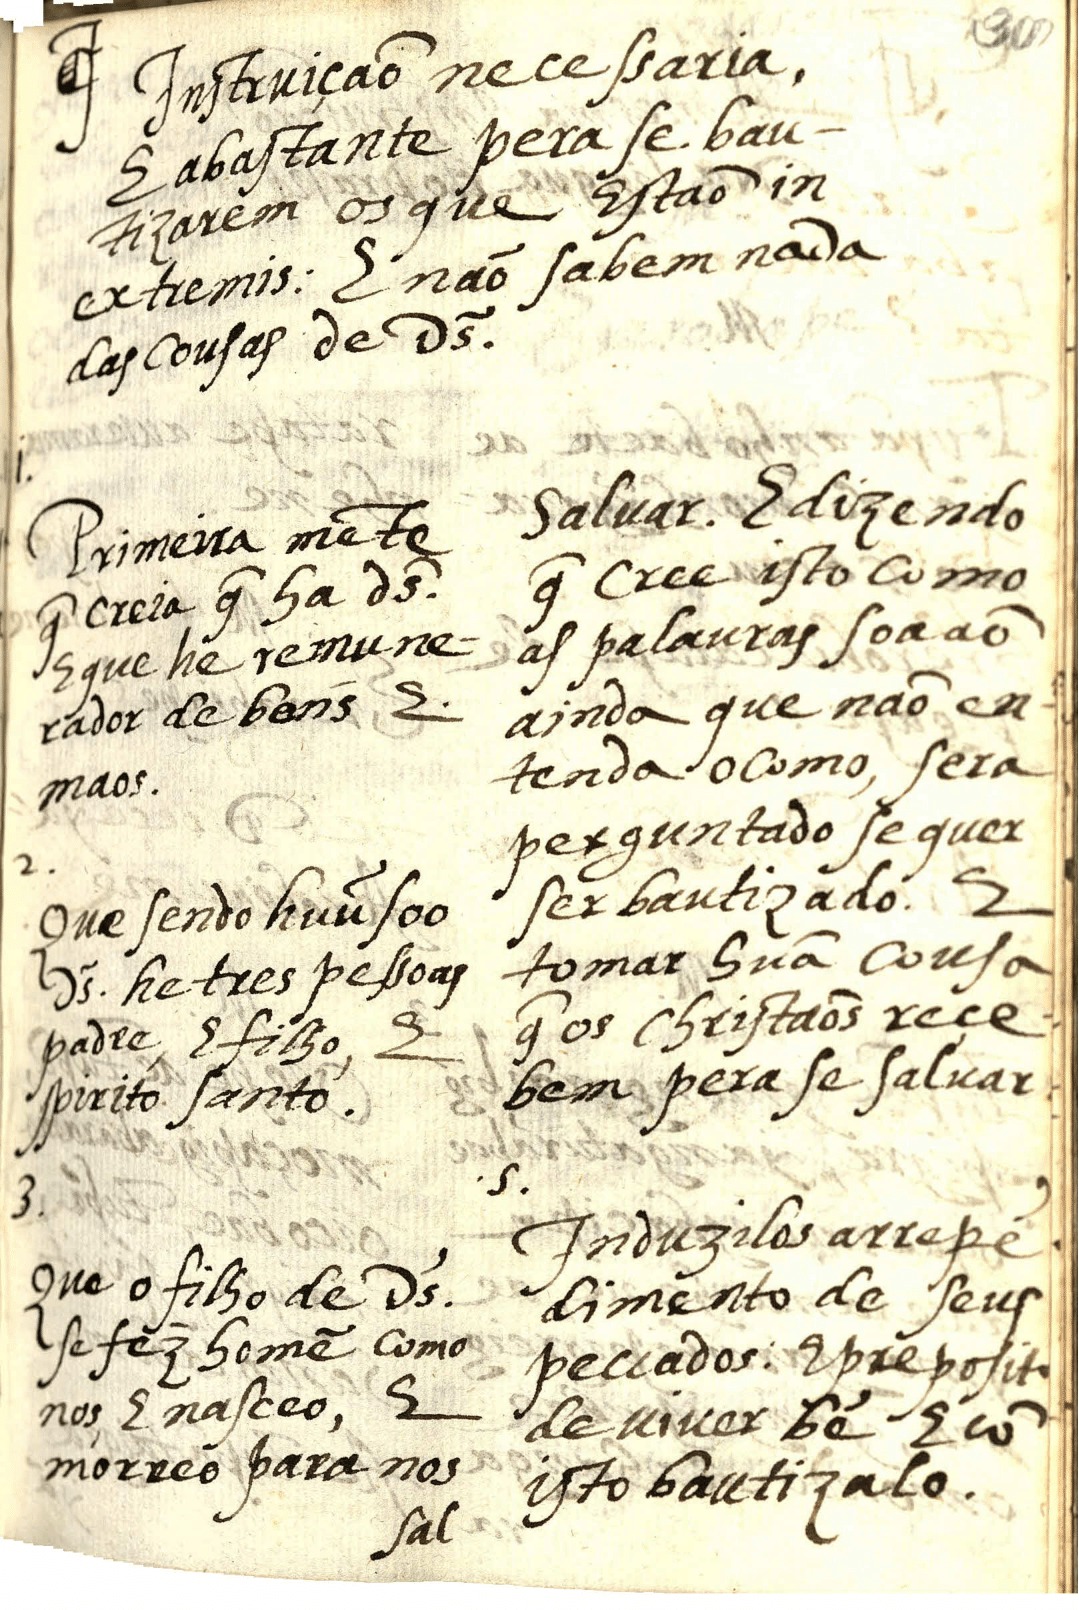 ¶ Instruiçaõ necessaria,
E abastante pera se bau-
tizarem os que Estaõ in
extremis: E naõ sabem nada
das cousas de Ds̃.
1.
Primeira mẽte
q̃ creia q̃ ha ds̃.
E que he remune-
rador de bens E
maos.
2.
Que sendo huũ soo
Ds̃. he tres pessoas
padre, E filho, E
spirito santo.
3.
Que o filho de Ds̃.
se fez homẽ como
nos, E nasceo, E
morreo para nos
sal
Saluar. E dizendo
q̃ cree isto como
as palauras soaaõ
ainda que naõ en-
tenda o como, sera
perguntado se quer
ser bautizado. E
tomar huã cousa
q̃ os Christaõs reçe-
bem pera se saluar.
5.
Induzilos arrepẽ
dimento de seus
peccados: E preposito
de uiuer bẽ E cõ
isto bautizalo.